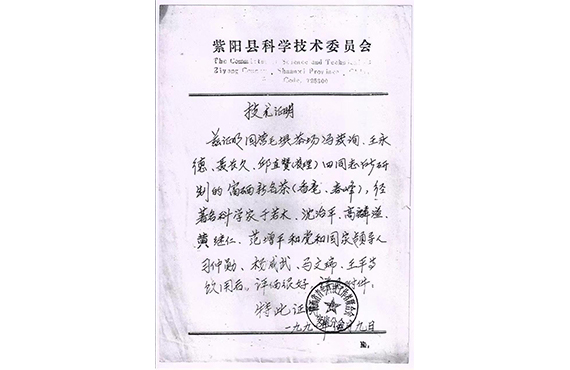 紫阳县科学技术委员会
The Committee Science and Technical
Ziyang County, Shaanxi Province,
Code, 725300
技术证明
兹证明国营毛坝茶场冯 王永
德、聂农久、邱 四同志所研
制的富硒新名茶(香毫、春峰),经
著名科学家于若木、沈治平、高麟溢、
黄继仁、范增平和党和国家领导人
习仲勋、杨成武、马文瑞、王平等
饮用后。评价很好。 附件:
特此证
一九九 月九日